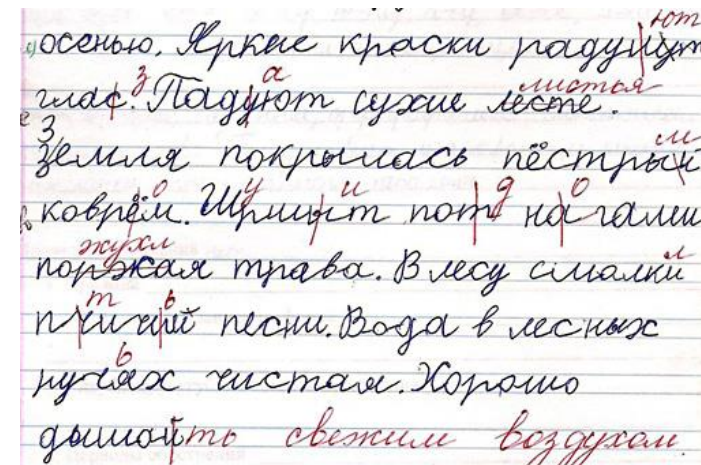 осенью. Яркие краски радуйут ют
глас. з Падуют а сухие лесте. листья
земля З покрылась пёстрый м
коврём. о Шрминт у и пот д на гами о
поржая жухл трава. В лесу смалки л
пчичий т ь песни. Вода в лесных
ручях ь чистая. Хорошо
дышать свежим воздухом